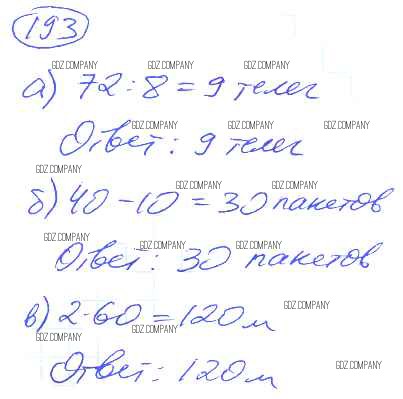 193
GDZ.COMPANY GDZ.COMPANY GDZ.COMPANY
а) 72 : 8 = 9 телег
GDZ.COMPANY GDZ.COMPANY GDZ.COMPANY
Ответ: 9 телег
GDZ.COMPANY
GDZ.COMPANY GDZ.COMPANY
б) 40 - 10 = 30 пакетов
GDZ.COMPANY GDZ.COMPANY GDZ.COMPANY
Ответ: 30 пакетов
GDZ.COMPANY
в) 2·60 = 120 м
GDZ.COMPANY GDZ.COMPANY
Ответ: 120 м
GDZ.COMPANY